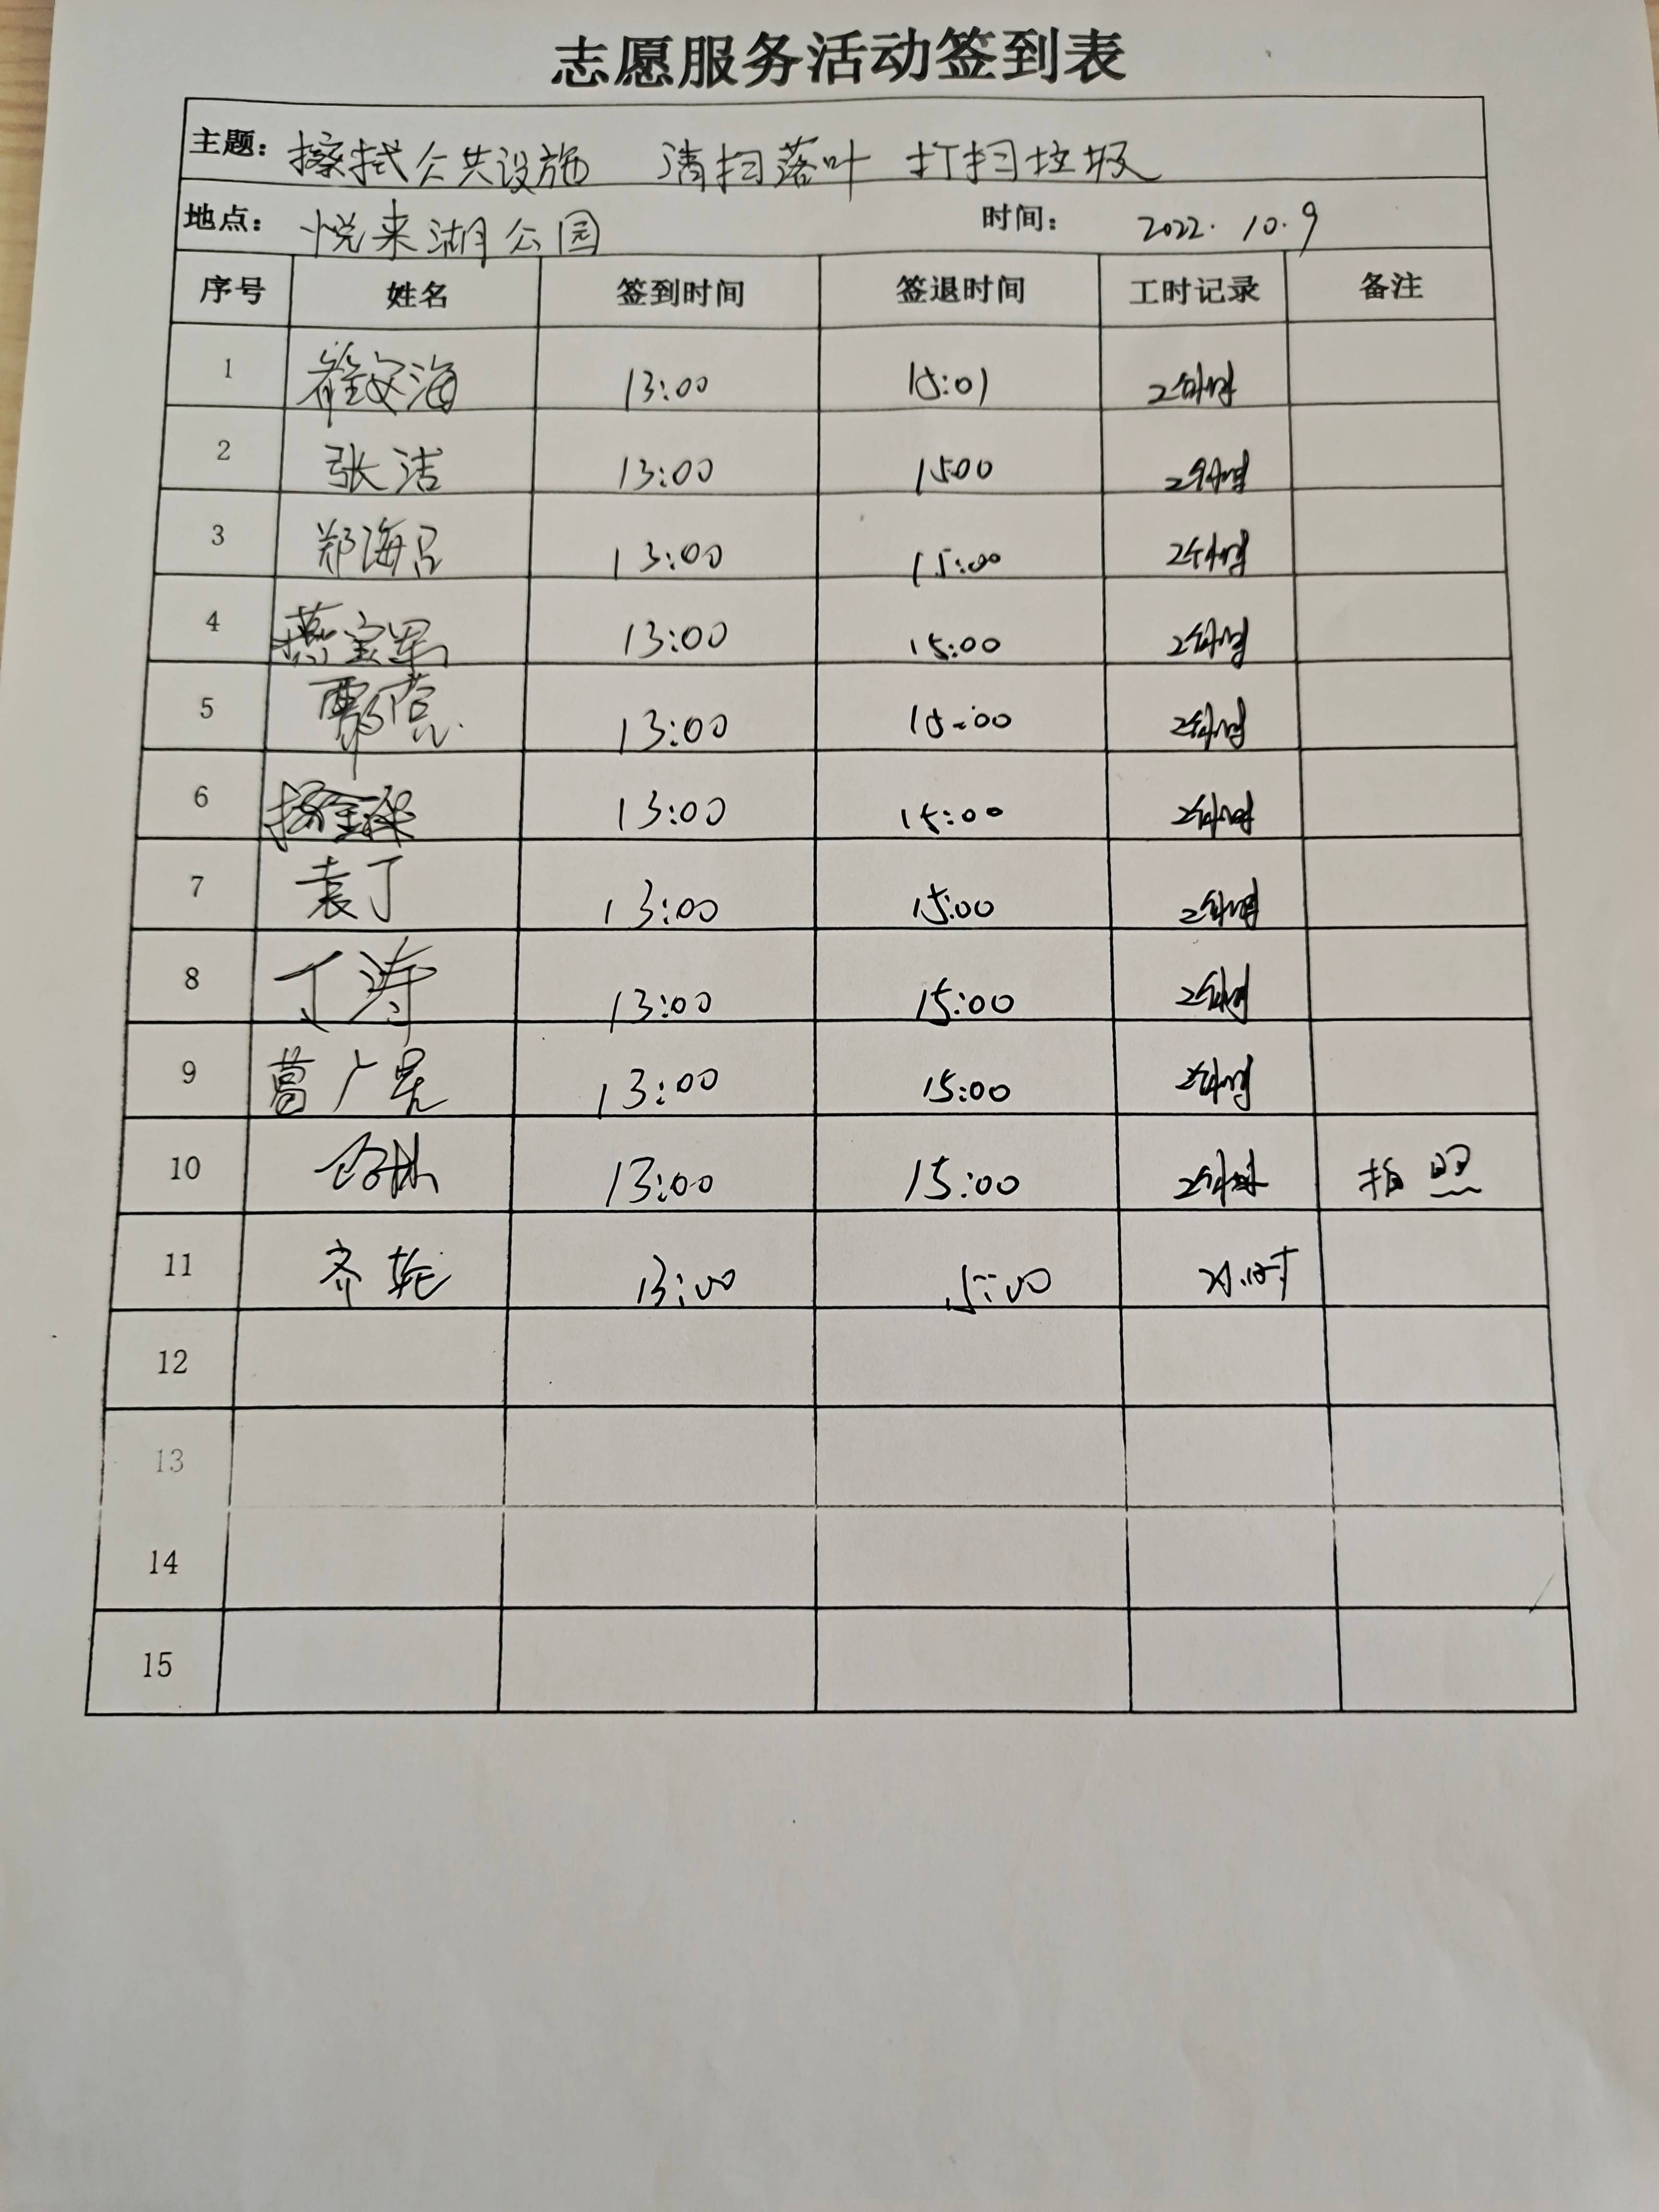 志愿服务活动签到表
主题: 擦拭公共设施 清扫落叶 打扫垃圾
地点: 悦来湖公园 时间: 2022.10.9
序号 姓名 签到时间 签退时间 工时记录 备注
1 13:00 15:01 2小时
2 张洁 13:00 15:00 2小时
3 郑海 13:00 15:00 2小时
4 13:00 15:00 2小时
5 13:00 15:00 2小时
6 13:00 15:00 2小时
7 袁丁 13:00 15:00 2小时
8 丁涛 13:00 15:00 2小时
9 葛广 13:00 15:00 2小时
10 13:00 15:00 2小时 拍照
11 齐 13:00 15:00 2小时
12
13
14
15